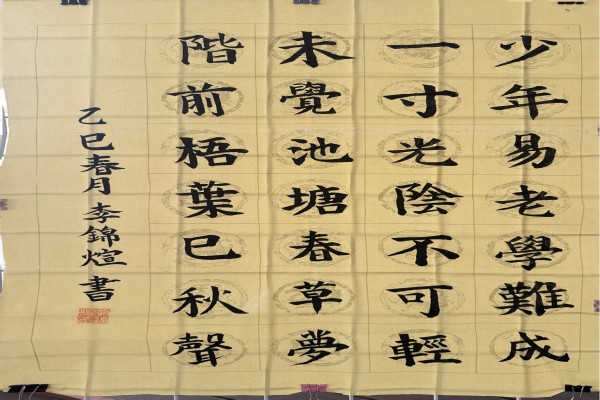 少年易老學難成
一寸光陰不可輕
未覺池塘春草夢
階前梧葉已秋聲
乙巳春月李錦煊書